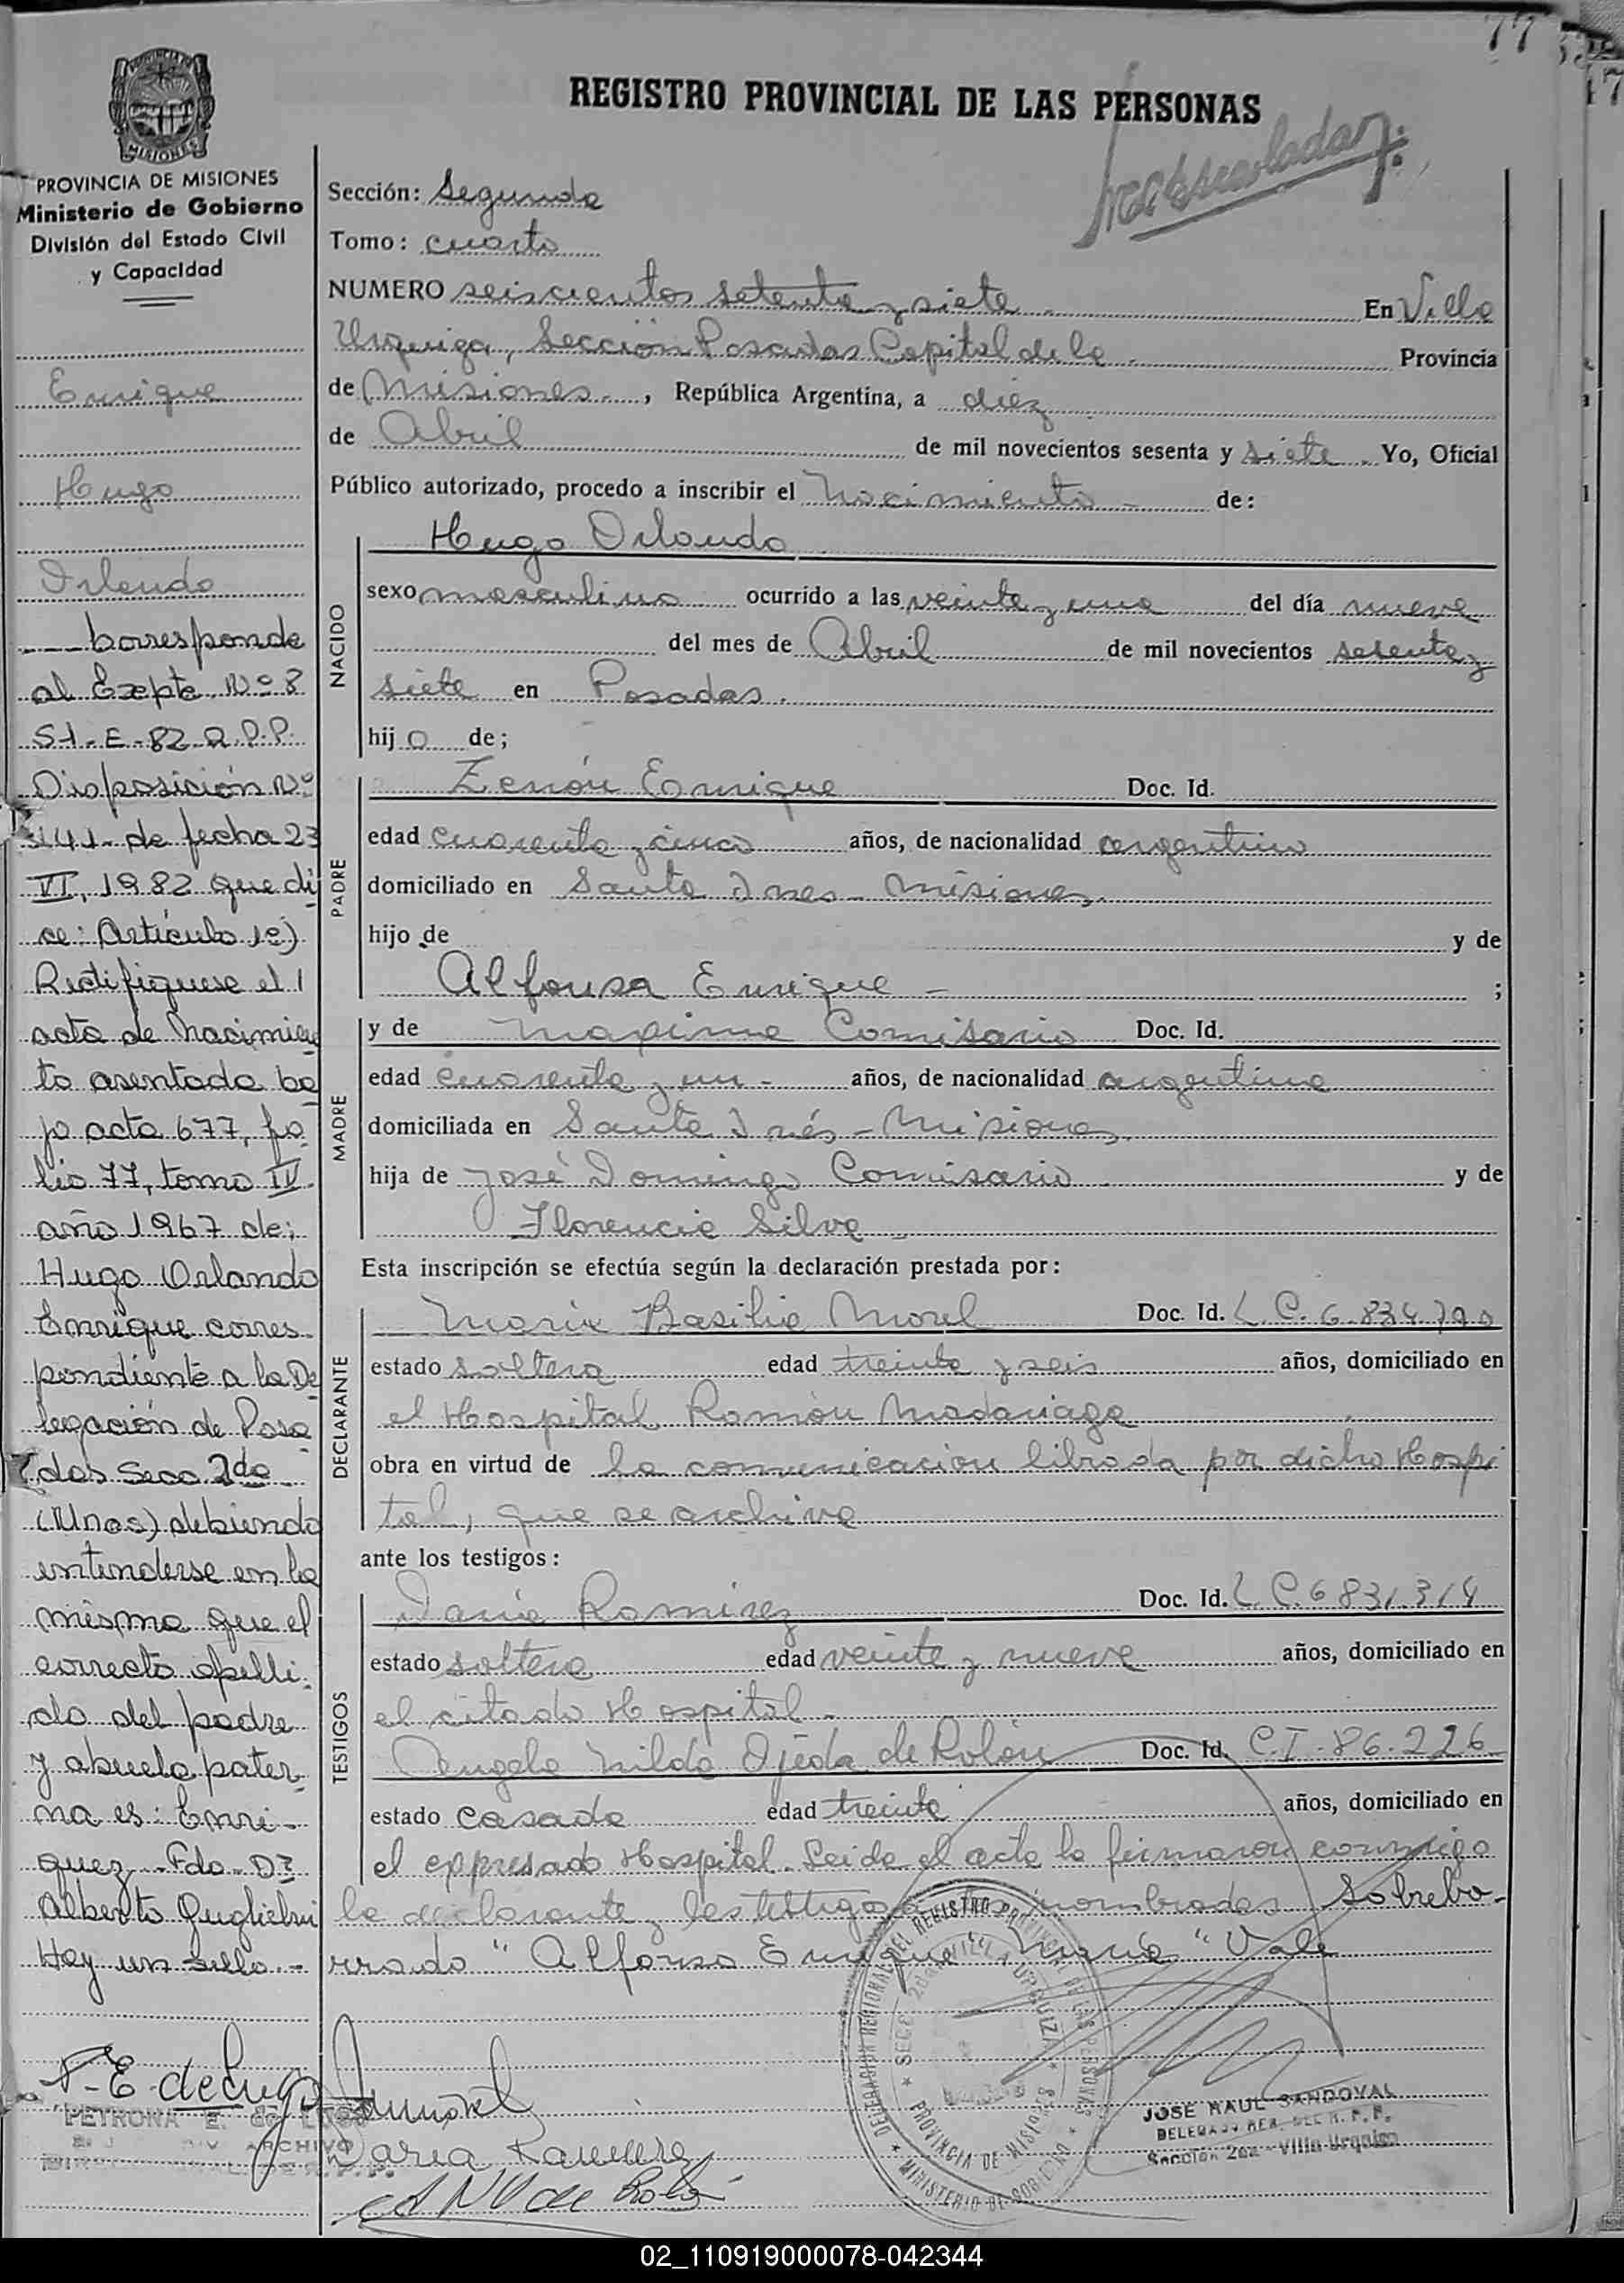 77
REGISTRO PROVINCIAL DE LAS PERSONAS
MISIONES
PROVINCIA DE MISIONES
Ministerio de Gobierno
División del Estado Civil
y Capacidad
Enrique
Hugo
Orlando
Corresponde
al Expte. Nº 8
51-E-82 R.P.P.
Disposición Nº
141- de fecha 23
VI, 1982 que di
ce: Artículo 1º)
Rectifíquese el
acta de nacimien
to asentada ba
jo acta 677, fo
lio 77, tomo IV
año 1967 de;
Hugo Orlando
Enrique corres
pondiente a la De
legación de Posa
das Secc. 2da
(Mnes) debiendo
entenderse en la
misma que el
correcto apelli
do del padre
y abuela pater
na es: Enri-
quez. Fdo. Dr
Alberto Guglielmi
Hay un sello.-
PETRONA E. de
ARCHIVO
Sección: Segunda
Tomo: cuarto
NUMERO seiscientos setenta y siete En Villa
Urquiza, Sección Posadas Capital de la Provincia
de Misiones, República Argentina, a diez
de Abril de mil novecientos sesenta y siete Yo, Oficial
Público autorizado, procedo a inscribir el nacimiento de:
NACIDO
Hugo Orlando
sexo masculino ocurrido a las veinte y una del día nueve
del mes de Abril de mil novecientos sesenta y
siete en Posadas.
hijo de;
PADRE
Zenón Enrique Doc. Id.
edad cuarenta y cinco años, de nacionalidad argentino
domiciliado en Santa Ines - Misiones
hijo de y de
Alfonsa Enrique - ;
MADRE
y de Maxima Comisario Doc. Id.
edad cuarenta y un - años, de nacionalidad argentina
domiciliada en Santa Inés - Misiones
hija de José Domingo Comisario y de
Florencia Silva
Esta inscripción se efectúa según la declaración prestada por:
DECLARANTE
María Basilia Morel Doc. Id. L.C. 6.834.790
estado soltera edad treinta y seis años, domiciliado en
el Hospital Ramón Madariaga
obra en virtud de la comunicación librada por dicho Hospi
tal, que se archiva
ante los testigos:
TESTIGOS
Daría Ramirez Doc. Id. L.C. 6831.314
estado soltera edad veinte y nueve años, domiciliado en
el citado Hospital -
Angela Nilda Ojeda de Rolón Doc. Id. C.I. 86.226
estado casada edad treinta años, domiciliado en
el expresado Hospital. Leida el acta la firmaron conmigo
la declarante y las testigos nombradas Sobrebo-
rrado "Alfonsa Enrique" "María" Vale
DELEGACION REGIONAL DEL REGISTRO PROVINCIAL DE LAS PERSONAS
SECC. 2da. VILLA URQUIZA
PROVINCIA DE MISIONES
MINISTERIO DE GOBIERNO
JOSE RAUL SANDOVAL
DELEGADO REG. DEL R. P. P.
Sección 2da - Villa Urquiza
Daria Ramirez
02_110919000078-042344